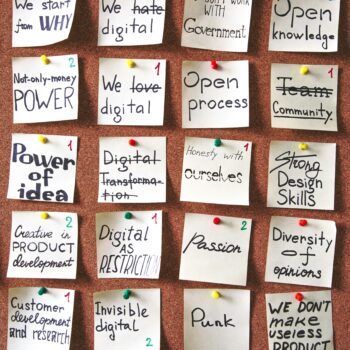 We start
from WHY
We hate
digital
Don't work
WITH
Government
Open
knowledge
2
Not-only-money
POWER
1
We love
digital
Open
process
1
Team
Community
Power
of
idea
1
Digital
Transforma-
tion
1
Honesty with
ourselves
Strong
Design
Skills
2
Creative in
PRODUCT
development
1
Digital
AS
RESTRICTION
2
Passion
Diversity
of
opinions
1
Customer
development
and research
Invisible
digital
2
Punk
WE DON'T
MAKE
USELESS
PRODUCT